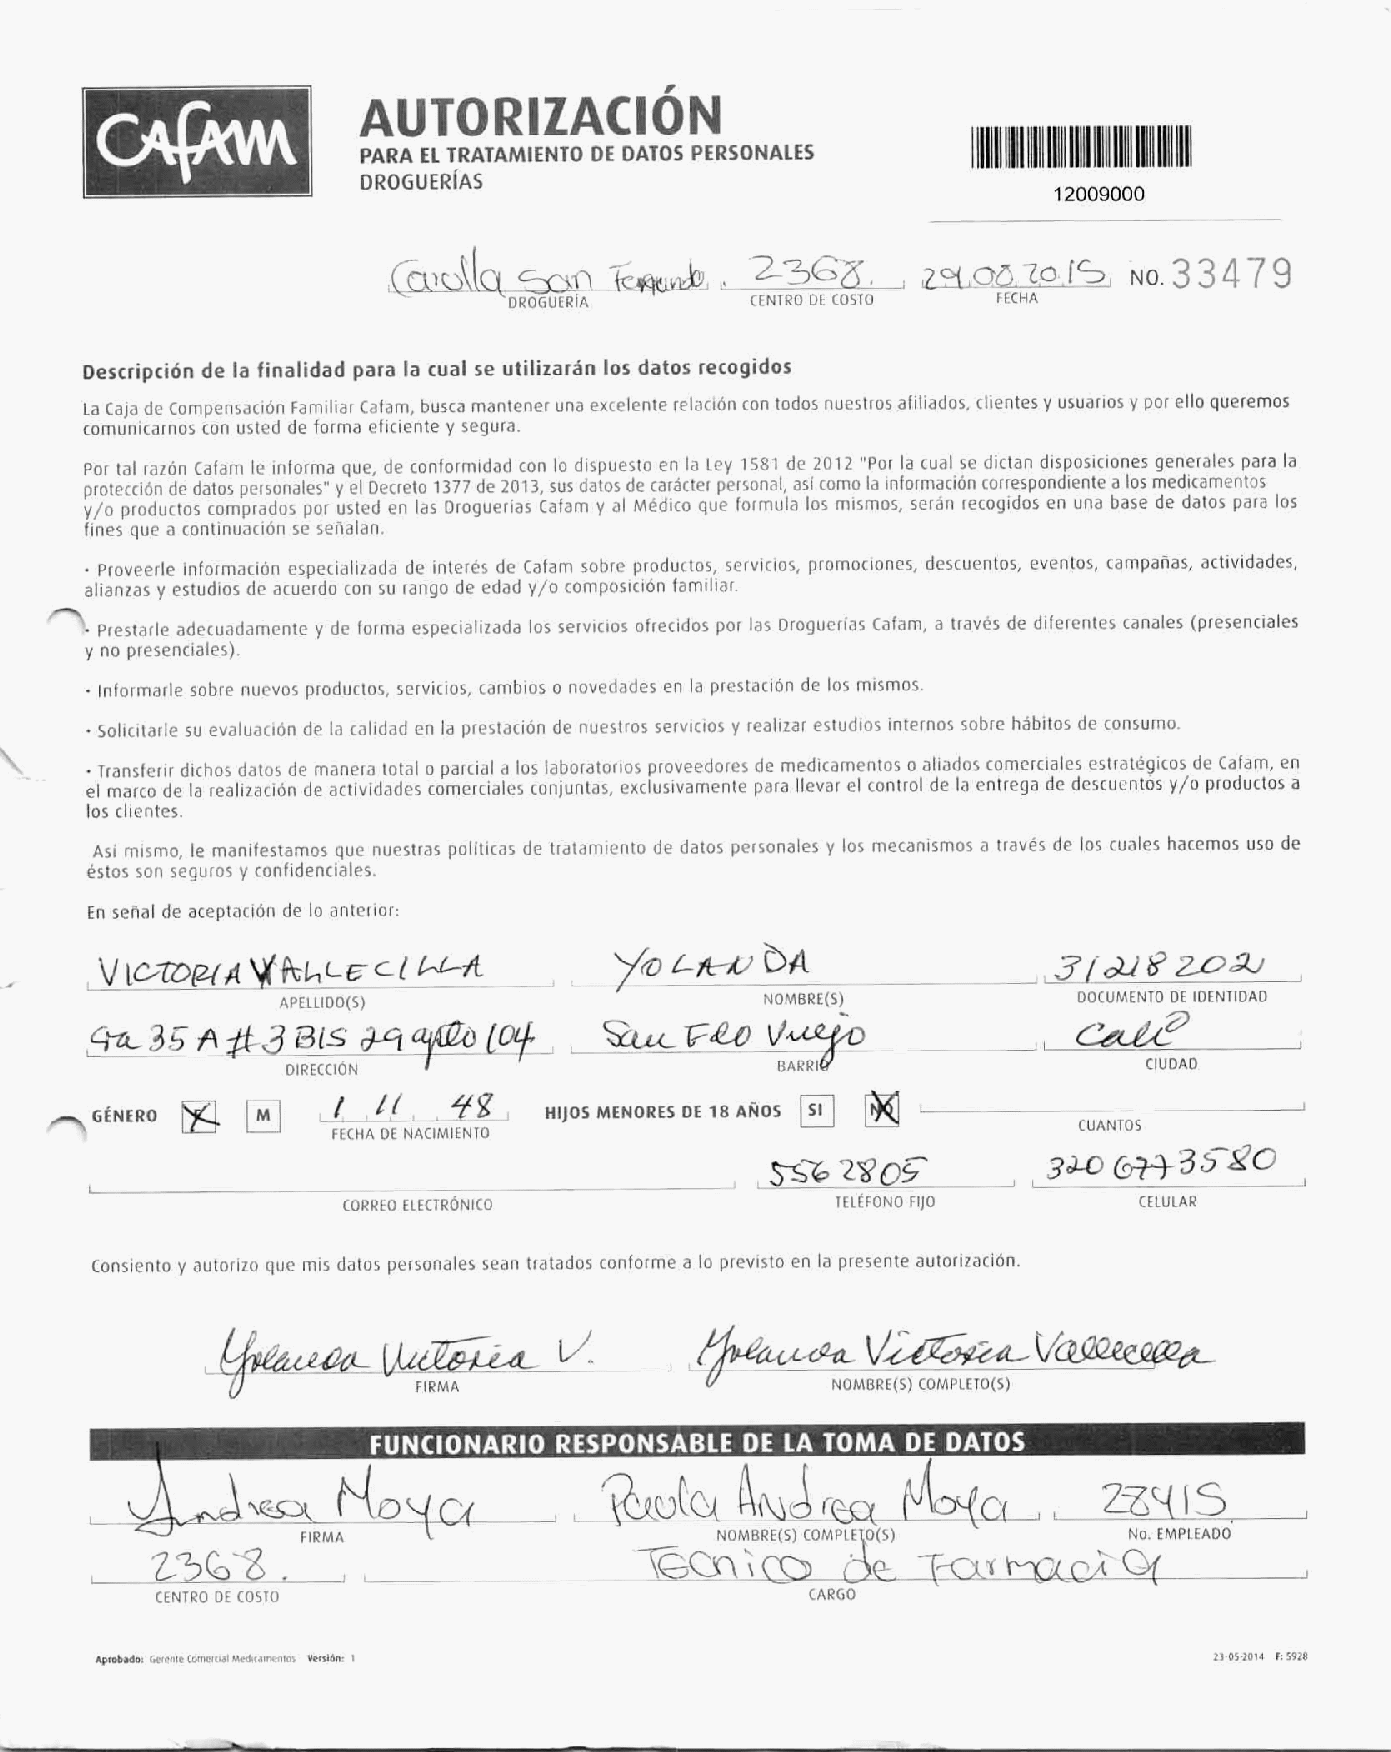 CAFAM
AUTORIZACIÓN
PARA EL TRATAMIENTO DE DATOS PERSONALES
DROGUERÍAS
12009000
Carulla San Fernando. 2368. 29.08.2015 NO. 33479
DROGUERÍA CENTRO DE COSTO FECHA
Descripción de la finalidad para la cual se utilizarán los datos recogidos
La Caja de Compensación Familiar Cafam, busca mantener una excelente relación con todos nuestros afiliados, clientes y usuarios y por ello queremos
comunicarnos con usted de forma eficiente y segura.
Por tal razón Cafam le informa que, de conformidad con lo dispuesto en la Ley 1581 de 2012 "Por la cual se dictan disposiciones generales para la
protección de datos personales" y el Decreto 1377 de 2013, sus datos de carácter personal, así como la información correspondiente a los medicamentos
y/o productos comprados por usted en las Droguerías Cafam y al Médico que formula los mismos, serán recogidos en una base de datos para los
fines que a continuación se señalan.
· Proveerle información especializada de interés de Cafam sobre productos, servicios, promociones, descuentos, eventos, campañas, actividades,
alianzas y estudios de acuerdo con su rango de edad y/o composición familiar.
· Prestarle adecuadamente y de forma especializada los servicios ofrecidos por las Droguerías Cafam, a través de diferentes canales (presenciales
y no presenciales).
· Informarle sobre nuevos productos, servicios, cambios o novedades en la prestación de los mismos.
· Solicitarle su evaluación de la calidad en la prestación de nuestros servicios y realizar estudios internos sobre hábitos de consumo.
· Transferir dichos datos de manera total o parcial a los laboratorios proveedores de medicamentos o aliados comerciales estratégicos de Cafam, en
el marco de la realización de actividades comerciales conjuntas, exclusivamente para llevar el control de la entrega de descuentos y/o productos a
los clientes.
Así mismo, le manifestamos que nuestras políticas de tratamiento de datos personales y los mecanismos a través de los cuales hacemos uso de
éstos son seguros y confidenciales.
En señal de aceptación de lo anterior:
VICTORIA VALLECILLA YOLANDA 31218202
APELLIDO(S) NOMBRE(S) DOCUMENTO DE IDENTIDAD
35 A # 3 BIS 29 apto 104 San Fdo Viejo Cali
DIRECCIÓN BARRIO CIUDAD
GÉNERO F M 1 11 48 HIJOS MENORES DE 18 AÑOS SI NO
FECHA DE NACIMIENTO CUANTOS
5562805 3206773580
CORREO ELECTRÓNICO TELÉFONO FIJO CELULAR
Consiento y autorizo que mis datos personales sean tratados conforme a lo previsto en la presente autorización.
Yolanda Victoria V. Yolanda Victoria Vallecilla
FIRMA NOMBRE(S) COMPLETO(S)
FUNCIONARIO RESPONSABLE DE LA TOMA DE DATOS
Andrea Moya Paola Andrea Moya 28415
FIRMA NOMBRE(S) COMPLETO(S) No. EMPLEADO
2368. Tecnico de Farmacia
CENTRO DE COSTO CARGO
Aprobado: Gerente Comercial Medicamentos Versión: 1 23-05-2014 F: 5928